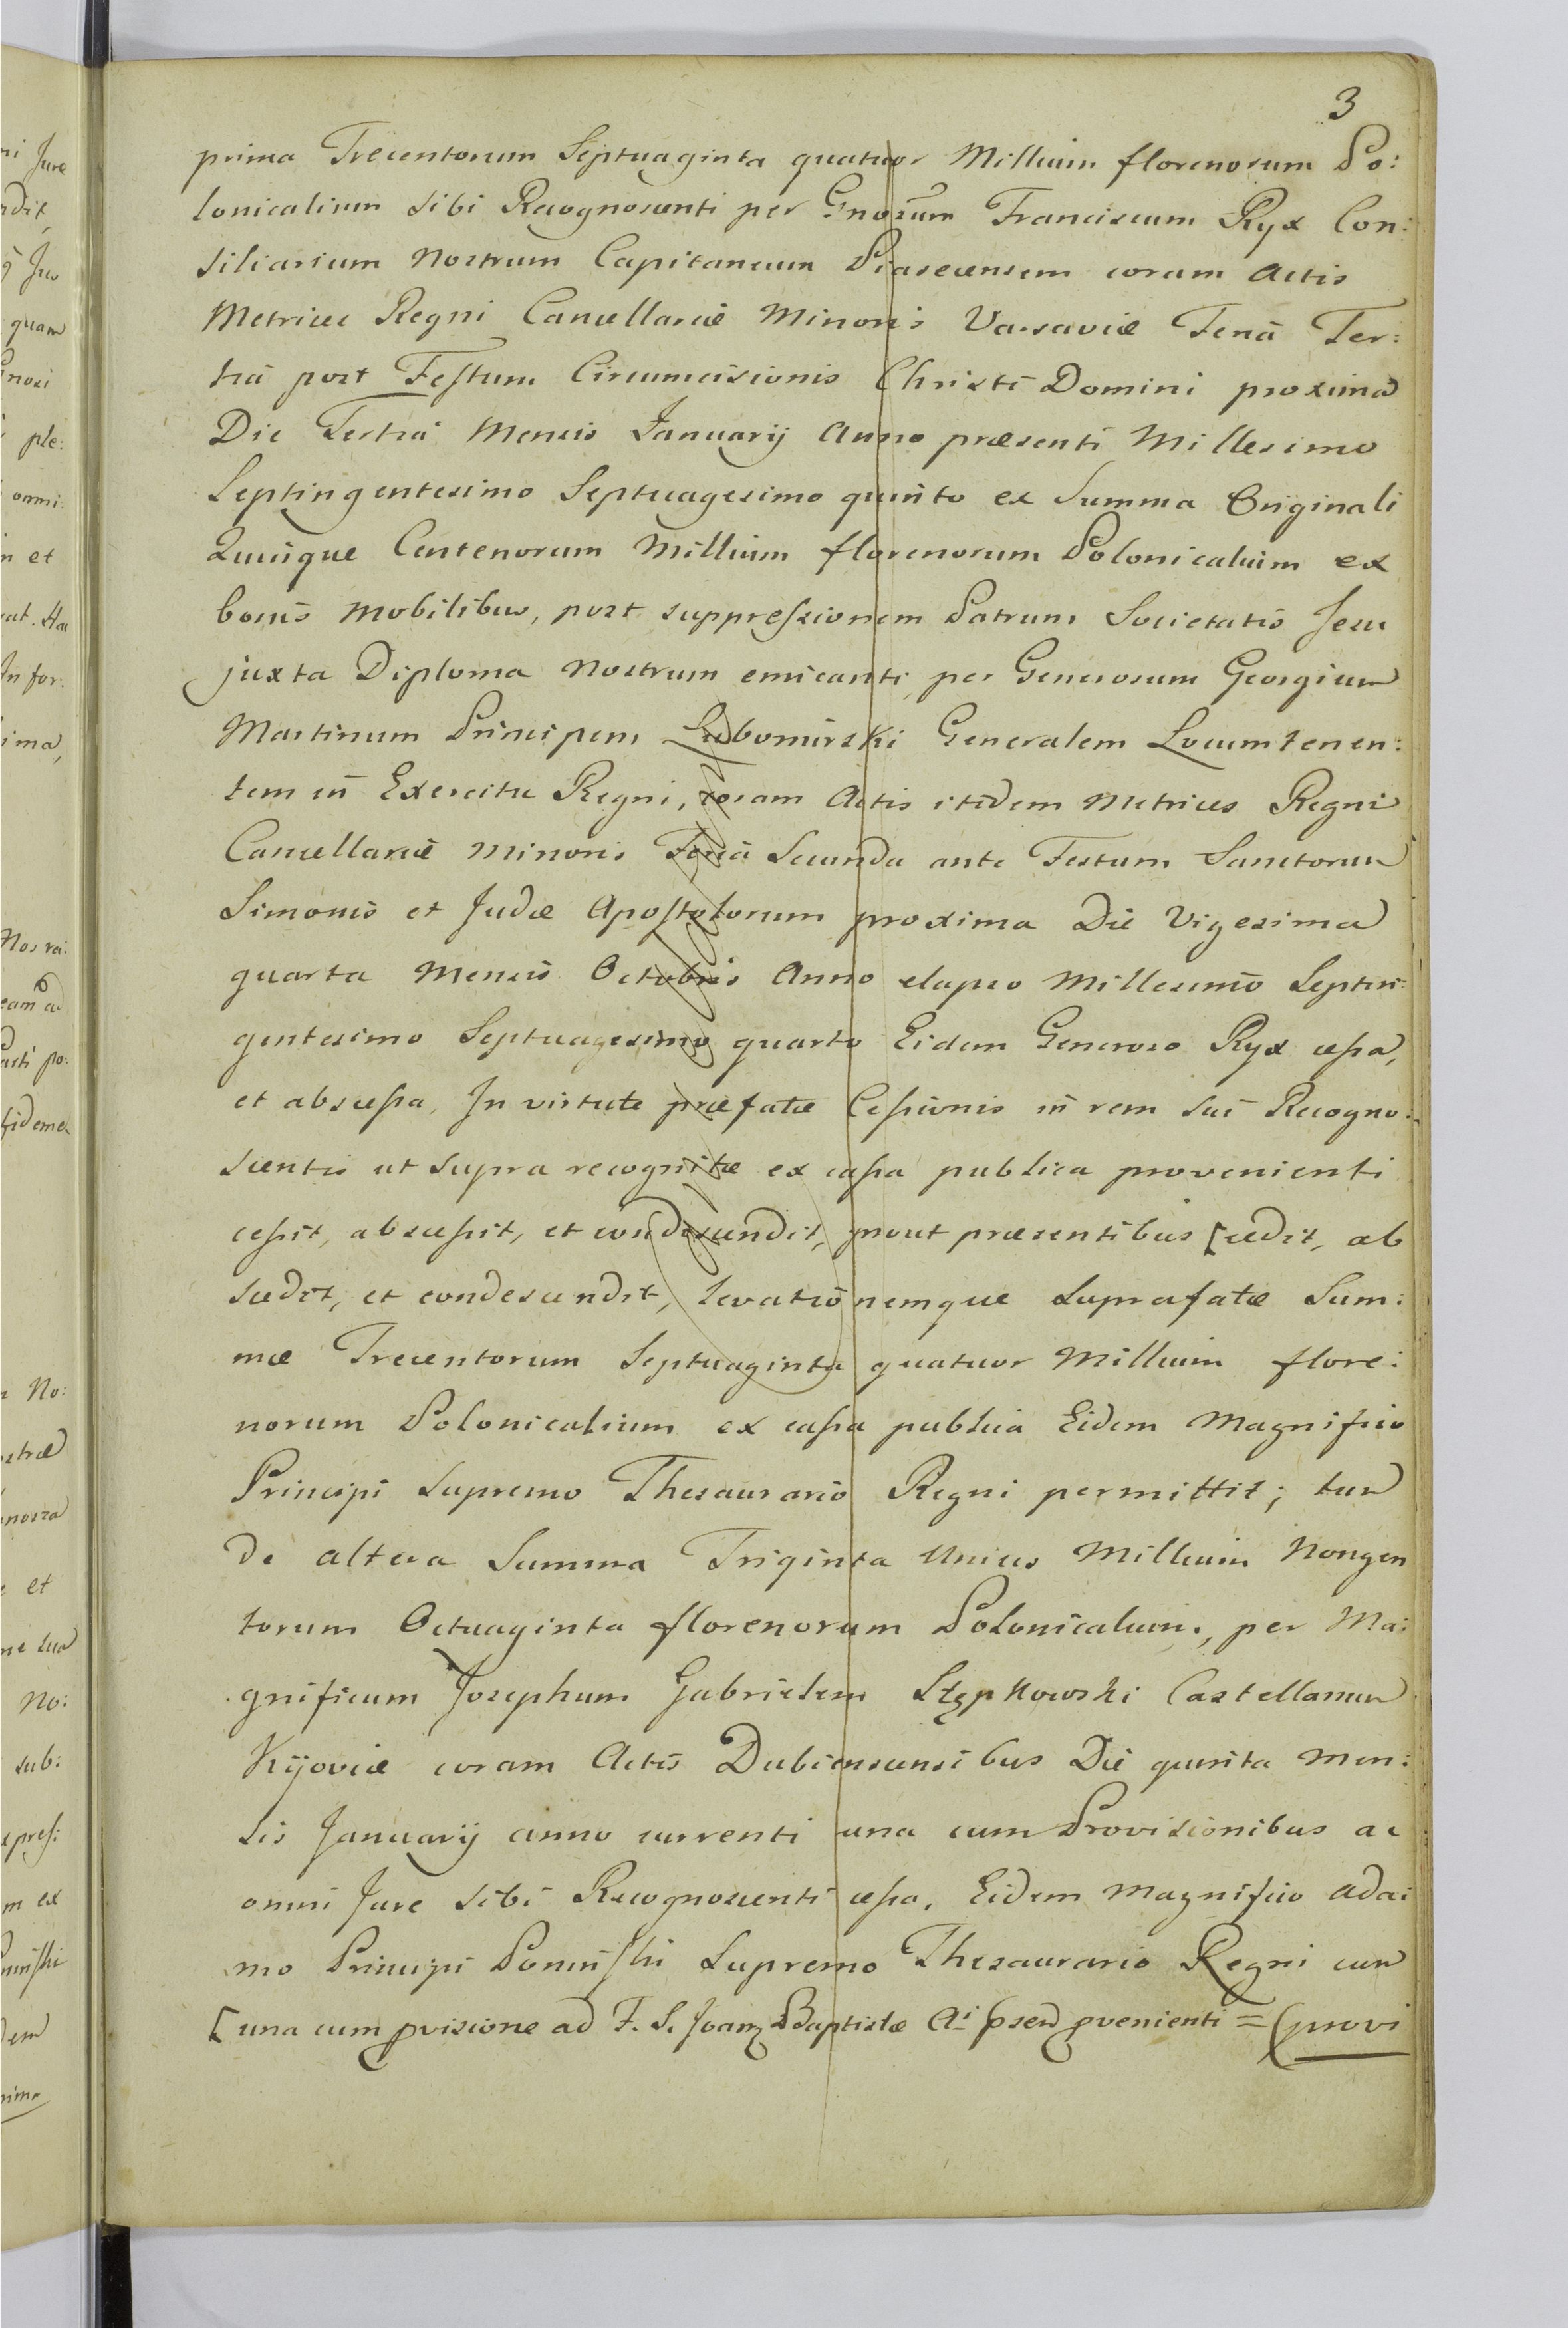 3
prima Trecentorum Septuaginta quatuor Millium florenorum Po:
lonicalium sibi Recognoscenti per Gnosum Franciscum Ryx Con:
siliarium Nostrum Capitaneum Piasecensem coram Actis
Metrices Regni Cancellariæ Minoris Varsaviæ Feriâ Ter:
tiâ post Festum Circumcisionis Christi Domini proxima
Die Tertiâ Mensis Januarij Anno præsenti Millesimo
Septingentesimo Septuagesimo quinto ex Summa Originali
Quinque Centenorum Millium florenorum Polonicalium ex
bonis Mobilibus, post suppressionem Patrum Societatis Jesu
juxta Diploma Nostrum emicanti per Generosum Georgium
Martinum Principem Lubomirski Generalem Locumtenen:
tem in Exercitu Regni, coram Actis itidem Metrices Regni
Cancellariæ Minoris Feriâ Secunda ante Festum Sanctorum
Simonis et Judæ Apostolorum proxima Die Vigesima
quarta Mensis Octobris Anno elapso Millesimo Septin:
gentesimo Septuagesimo quarto Eidem Generoso Ryx cessa,
et abscessa, In virtute præfatæ Cessionis in rem sui Recogno:
scentis ut supra recognitæ ex cassa publica provenienti
cessit, abscessit, et condescendit, prout præsentibus [cedit, ab
scedit, et condescendit, levationemque suprafatæ Sum:
mæ Trecentorum Septuaginta quatuor Millium flore:
norum Polonicalium ex cassa publica Eidem Magnifico
Principi Supremo Thesaurario Regni permittit; tum
de altera Summa Triginta Unius Millium Nongen
torum Octuaginta florenorum Polonicalium, per Ma:
gnificum Josephum Gabrielem Stępkowski Castellanum
Kijoviæ coram Actis Dubiensensibus Die quinta Men:
sis Januarij anno currenti una cum Provisionibus ac
omni Jure sibi Recognoscenti cessa, Eidem Magnifico Ada:
mo Principi Poniński Supremo Thesaurario Regni cum
[una cum pvisione ad F. S. Joanz Baptistæ Ai psen pvenienti = (provi